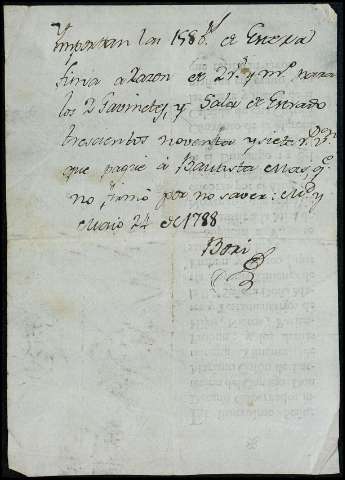 Importan las 158 vs de Estera
fina a razon de 2 rs y mo para
los 2 Gavinetes, y Sala de Estrado
trescientos noventa y siete rs vn
que pagué à Bautista Mas, qe
no firmó por no saver: Md y
Maio 24 de 1788
Bori